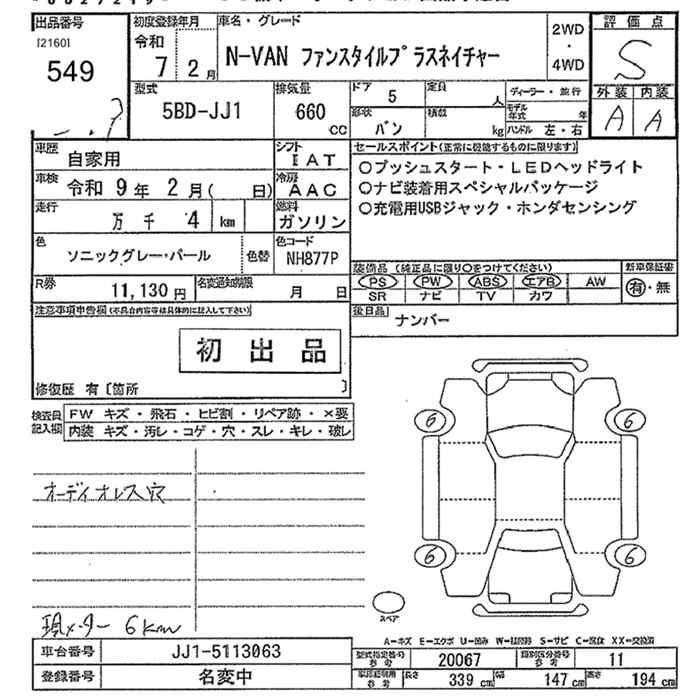 出品番号 初度登録年月 車名・グレード 2WD 評価点
[2160] 令和
549 7 2月 N-VAN ファンスタイルプラスネイチャー ・ 4WD S
型式 排気量 ドア 5 定員 人 ディーラー・並行 外装 内装
5BD-JJ1 660 CC 形状 バン 積載 kg モデル年式 年 A A
ハンドル 左・右
車歴 自家用 シフト IAT セールスポイント(正常に機能するものに限ります)
車検 令和 9年 2月( 日) 冷房 AAC ○プッシュスタート・LEDヘッドライト
○ナビ装着用スペシャルパッケージ
走行 万 千 4 km 燃料 ガソリン ○充電用USBジャック・ホンダセンシング
色 ソニックグレー・パール 色替 色コード NH877P
装備品(純正品に限り○をつけてください) 新車保証書
R券 11,130円 名変通知期限 月 日 PS PW ABS エアB AW 有・無
SR ナビ TV カワ
注意事項申告欄(不具合内容等は具体的に記入して下さい) 後日品 ナンバー
初出品
修復歴 有〔箇所 〕
検査員記入欄 FW キズ・飛石・ヒビ割・リペア跡・×要
内装 キズ・汚レ・コゲ・穴・スレ・キレ・破レ
6 6
オーディオレス穴
6 6
スペア
現メーター 6km
A-キズ E-エクボ U-凹み W-補修跡 S-サビ C-腐食 XX-交換済
車台番号 JJ1-5113063 型式指定番号 参考 20067 類別区分番号 参考 11
登録番号 名変中 参考 長さ 339 cm 幅 147 cm 高さ 194 cm